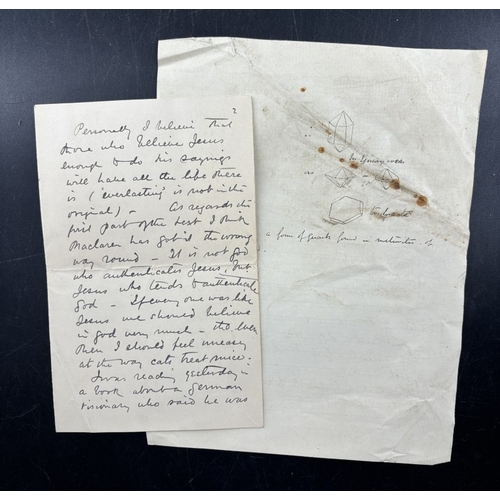 2
Personally I believe that
those who believe Jesus
enough to do his sayings
will have all the life there
is ('everlasting' is not in the
original) — As regards the
first part of the text I think
Maclaren has got it the wrong
way round — It is not God
who authenticates Jesus, but
Jesus who tends to authenticate
God — If every one was like
Jesus we should believe
in God very much — tho' even
then I should feel uneasy
at the way cats treat mice.
I was reading yesterday in
a book about a German
visionary who said he was
in
or
a form of Quartz found in